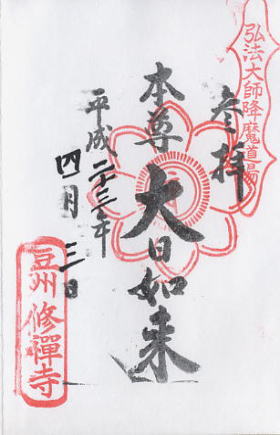 弘法大師降魔道場
参拝
本尊 大日如来
平成二十三年
四月三日
豆州 修禅寺